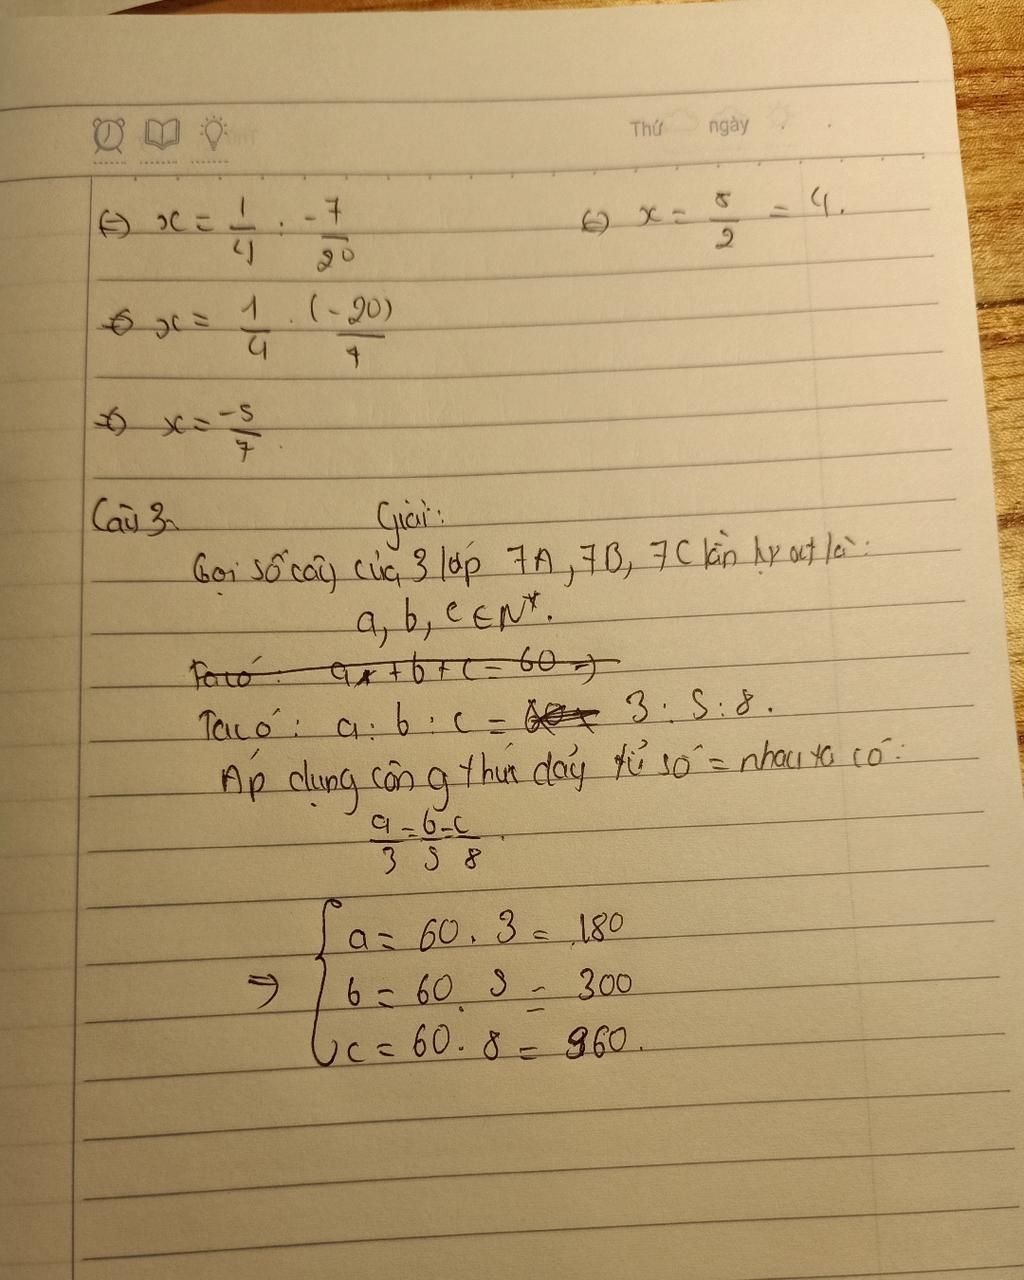 Thứ ngày
(=) x = 1/4 : -7/20
(=) x = 8/2 = 4.
x = 1/4 . (-20)/7
x = -5/7
Câu 3 Giải:
Gọi số cây của 3 lớp 7A, 7B, 7C lần lượt là:
a, b, c ∈ N*.
Ta có: a + b + c = 60 =>
Ta có: a : b : c = 3 : 5 : 8.
Áp dụng công thức dãy tỉ số = nhau ta có:
a/3 = b/5 = c/8
=> { a = 60 . 3 = 180
b = 60 . 5 = 300
c = 60 . 8 = 960.